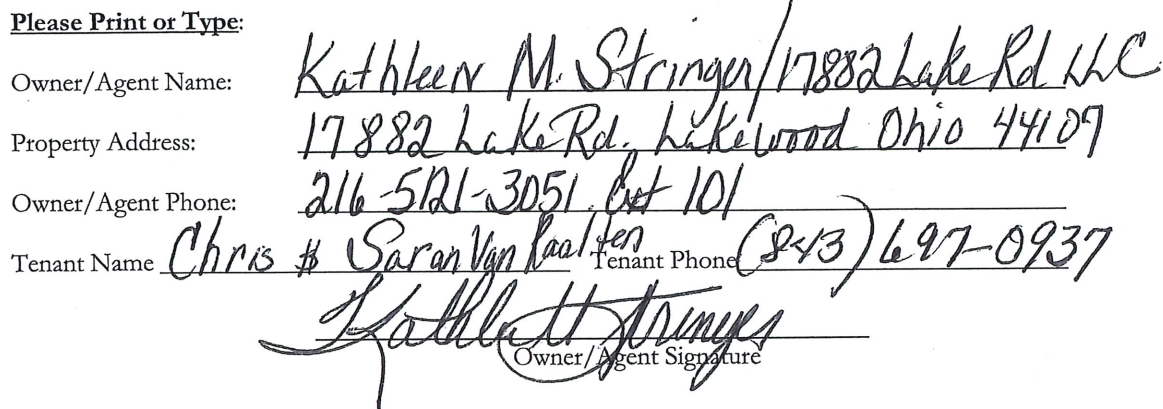 Please Print or Type:
Owner/Agent Name: Kathleen M. Stringer/17882 Lake Rd LLC
Property Address: 17882 Lake Rd. Lakewood Ohio 44107
Owner/Agent Phone: 216-521-3051 Ext 101
Tenant Name Chris & Saran Van Raalten Tenant Phone (843) 697-0937
Kathleen M Stringer
Owner/Agent Signature